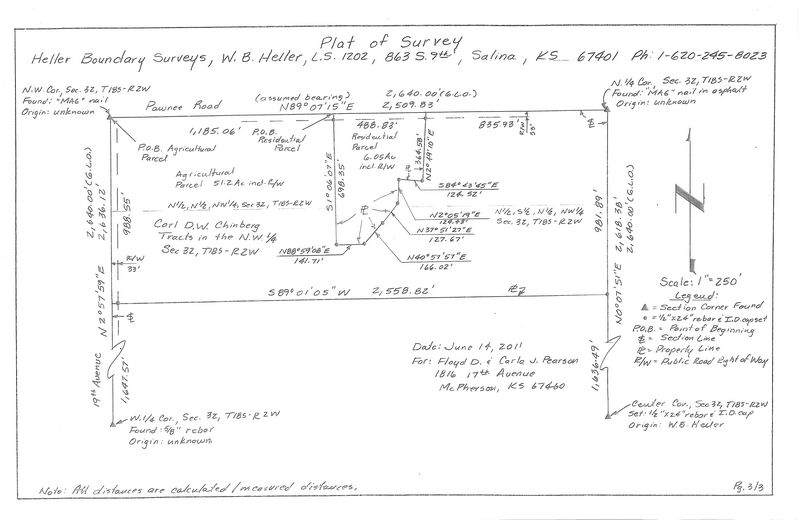 Plat of Survey
Heller Boundary Surveys, W. B. Heller, L.S. 1202, 863 S. 9th, Salina, KS 67401 Ph: 1-620-245-8023
N.W. Cor., Sec. 32, T18S-R2W
Found: "MAG" nail
Origin: unknown
Pawnee Road
(assumed bearing)
N89°07'15"E
2,640.00'(G.L.O.)
2,509.83'
N. 1/4 Cor., Sec. 32, T18S-R2W
Found: "MAG" nail in asphalt
Origin: unknown
1,185.06'
P.O.B. Residential Parcel
488.83'
835.93'
R/W
33'
P.O.B. Agricultural
Parcel
Residential
Parcel
6.05Ac
incl. R/W
364.58'
N2°49'10"E
Agricultural
Parcel 51.2 Ac incl. R/W
S1°06'07"E
698.35'
S84°43'45"E
124.52'
2,640.00'(G.L.O.)
2,636.12'
988.55'
N1/2, N1/2, NW1/4, Sec 32, T18S-R2W
N2°05'19"E
124.43'
N1/2, S1/2, N1/2, NW1/4
Sec 32, T18S-R2W
981.89'
2,618.38'
2,640.00'(G.L.O.)
Carl D.W. Chinberg
Tracts in the N.W. 1/4
Sec 32, T18S-R2W
N37°51'27"E
127.67'
N88°59'08"E
141.71'
N40°57'57"E
166.02'
R/W
33'
N2°57'59"E
S89°01'05"W 2,558.82'
N0°07'51"E
Scale: 1"=250'
Legend:
▲ = Section Corner Found
• = 1/2"x24" rebar & I.D. cap set
P.O.B. = Point of Beginning
℄ = Section Line
⅊ = Property Line
R/W = Public Road Right of Way
19th Avenue
1,647.57'
1,636.49'
Date: June 14, 2011
For: Floyd D. & Carla J. Pearson
1816 17th Avenue
McPherson, KS 67460
W. 1/4 Cor., Sec. 32, T18S-R2W
Found: 5/8" rebar
Origin: unknown
Center Cor., Sec 32, T18S-R2W
Set: 1/2"x24" rebar & I.D. cap
Origin: W.B. Heller
Note: All distances are calculated/measured distances.
Pg. 3/3